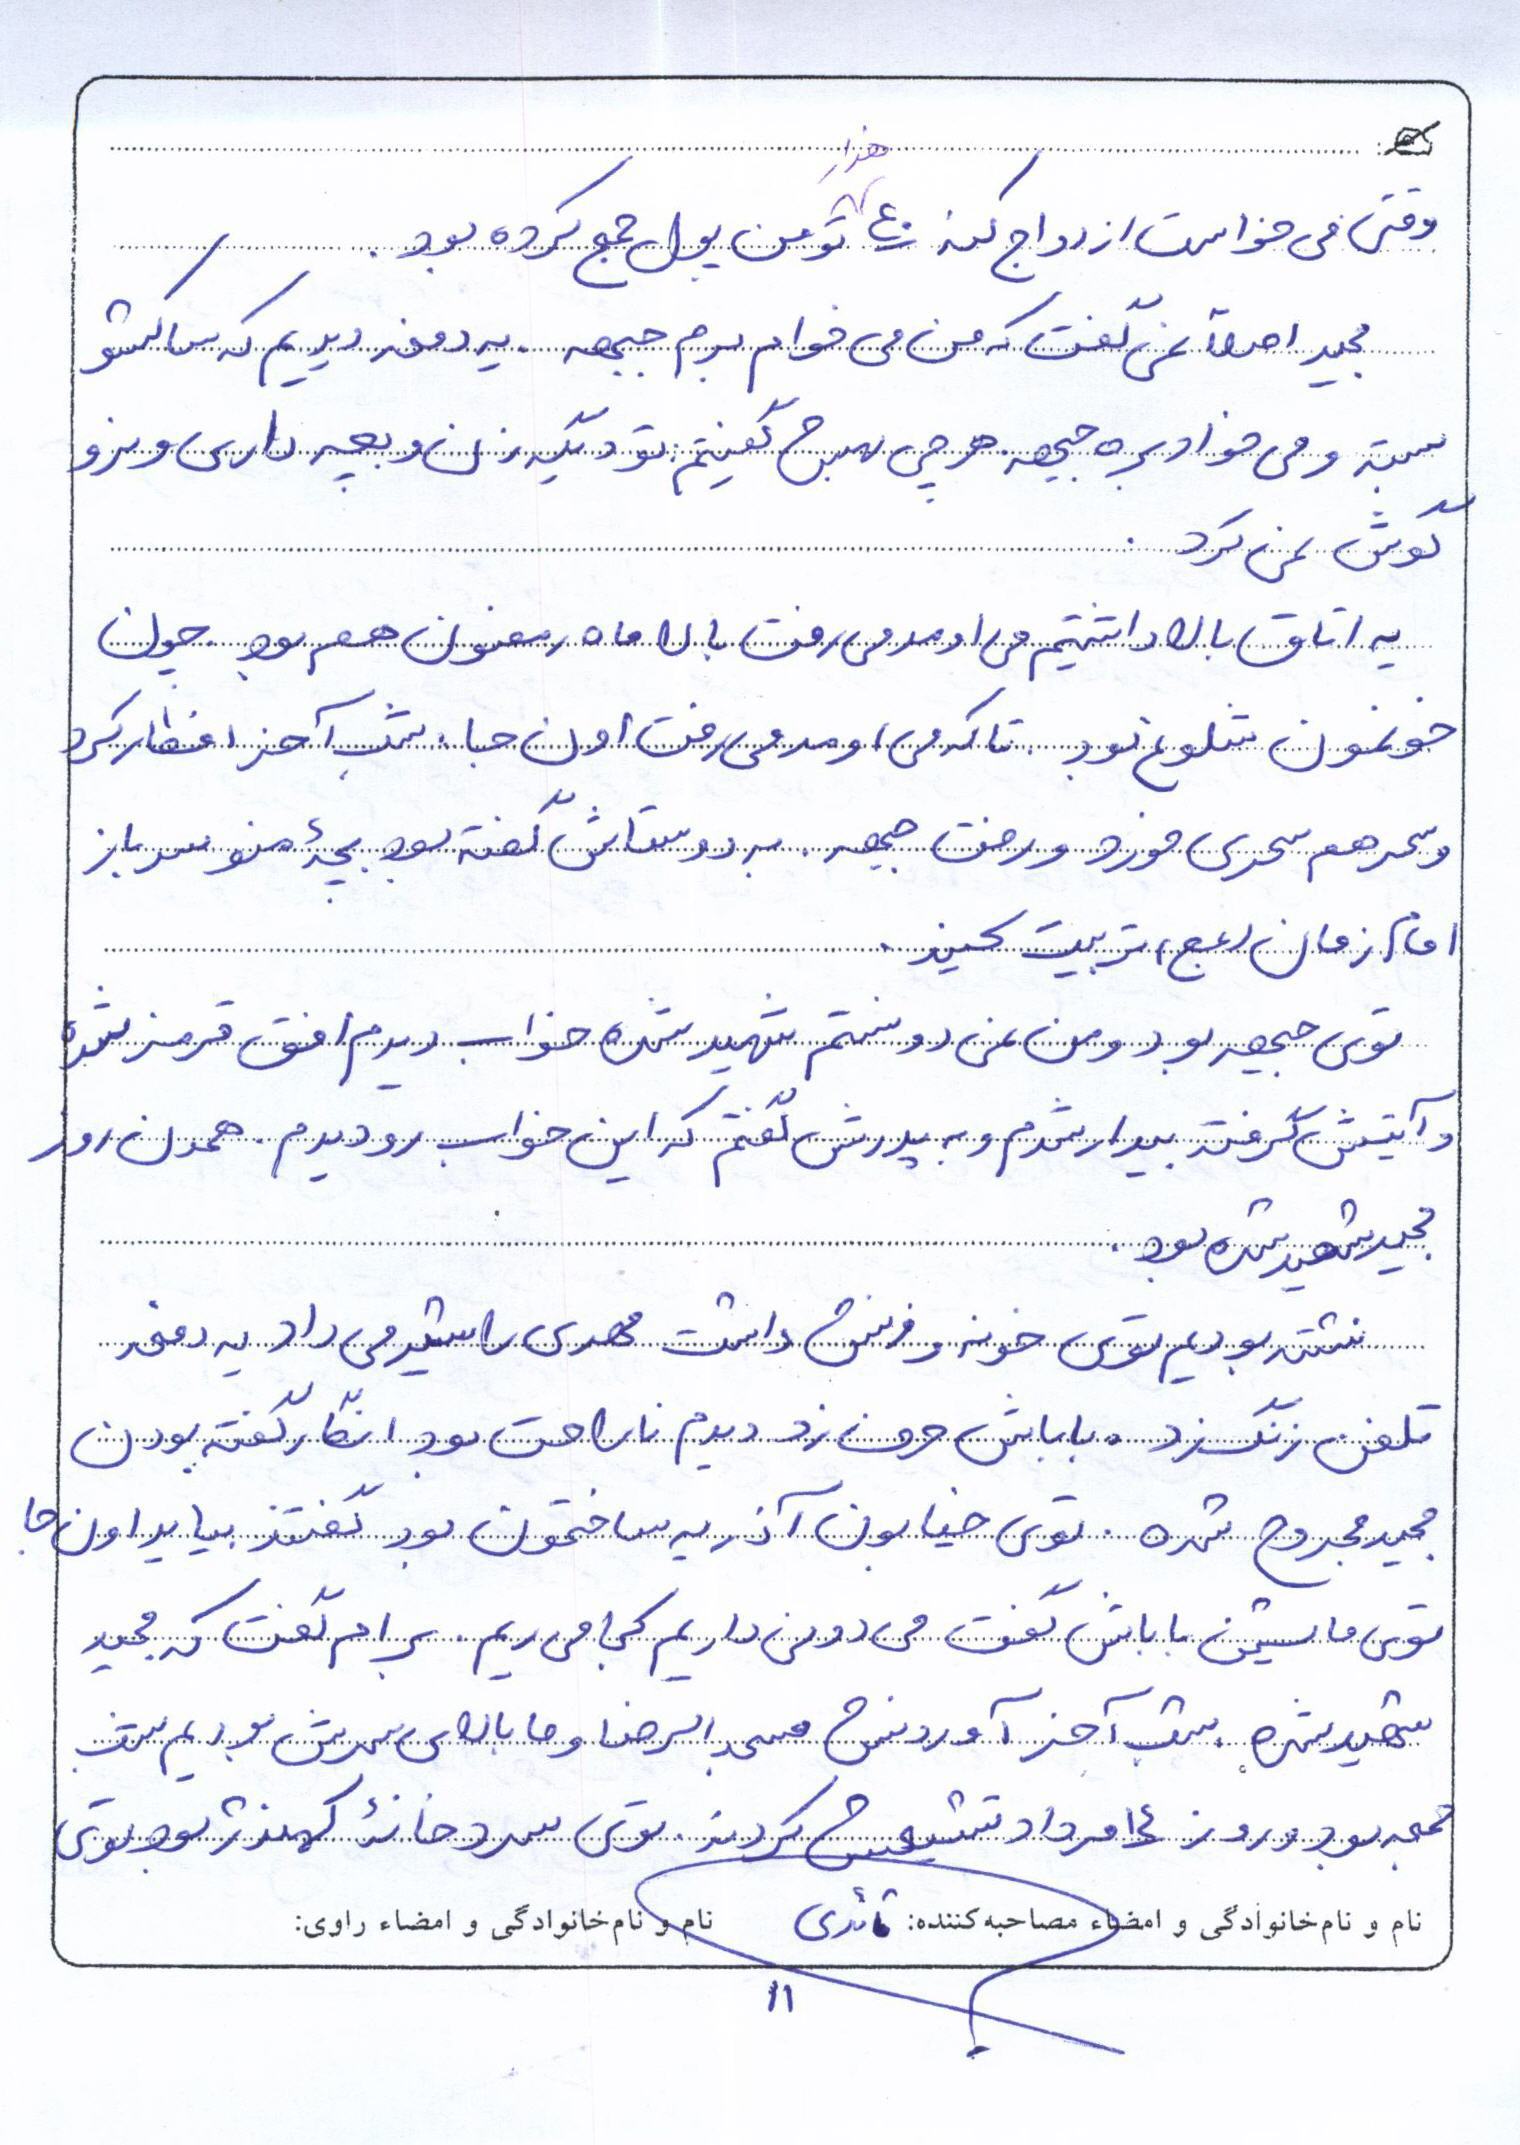 هزار
وقتی می خواست ازدواج کنه ۴۰ تومن پول جمع کرده بود.
مجید اصلاً نمی گفت که من می خوام برم جبهه. یه دفعه دیدیم که ساکشو
بسته و می خواد بره جبهه. هرچی بهش گفتیم: تو دیگه زن و بچه داری و نرو
گوش نمی کرد.
یه اتاق بالا داشتیم می اومد می رفت بالا ماه رمضون هم بود. چون
خونمون شلوغ بود. تا که می اومد می رفت اون جا. شب آخر افطار کرد
و سحر هم سحری خورد و رفت جبهه. به دوستاش گفته بود بچۀ منو سرباز
امام زمان (عج) تربیت کنید.
توی جبهه بود و من نمی دونستم شهید شده خواب دیدم افق قرمز شده
و آتیش گرفته بیدار شدم و به پدرش گفتم که این خواب رو دیدم. همون روز
مجید شهید شده بود.
نشسته بودیم توی خونه و زنش داشت مهدی را شیر می داد یه دفعه
تلفن زنگ زد. باباش حرف زد دیدم ناراحت بود انگار گفته بودن
مجید مجروح شده. توی خیابون آذر یه ساختمون بود گفتند بیاید اون جا
توی ماشین باباش گفت می دونی داریم کجا می ریم. بهم گفت که مجید
شهید شده. شب آخر آوردنش مسجد الرضا و ما بالای سرش بودیم شب
جمعه بود و روز ۱۴ مرداد تشییعش کردند. توی سردخانۀ کهندژ بود توی
نام و نام‌خانوادگی و امضاء مصاحبه‌کننده: قائدی نام و نام‌خانوادگی و امضاء راوی:
۱۱